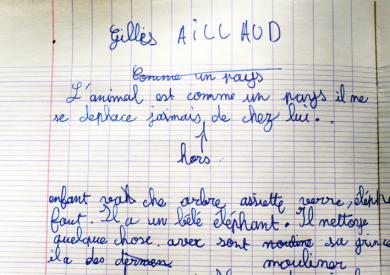 Gilles AiLLAUD
Comme un pays
L'animal est comme un pays il ne
se deplace jaimais de chez lui..
hors
enfant vah che arbre assiette verre, éléph
faut. Il a un bébé éléphant. Il nettoye
quelque chose. avec sont mouline sa grin
ila des mouliner